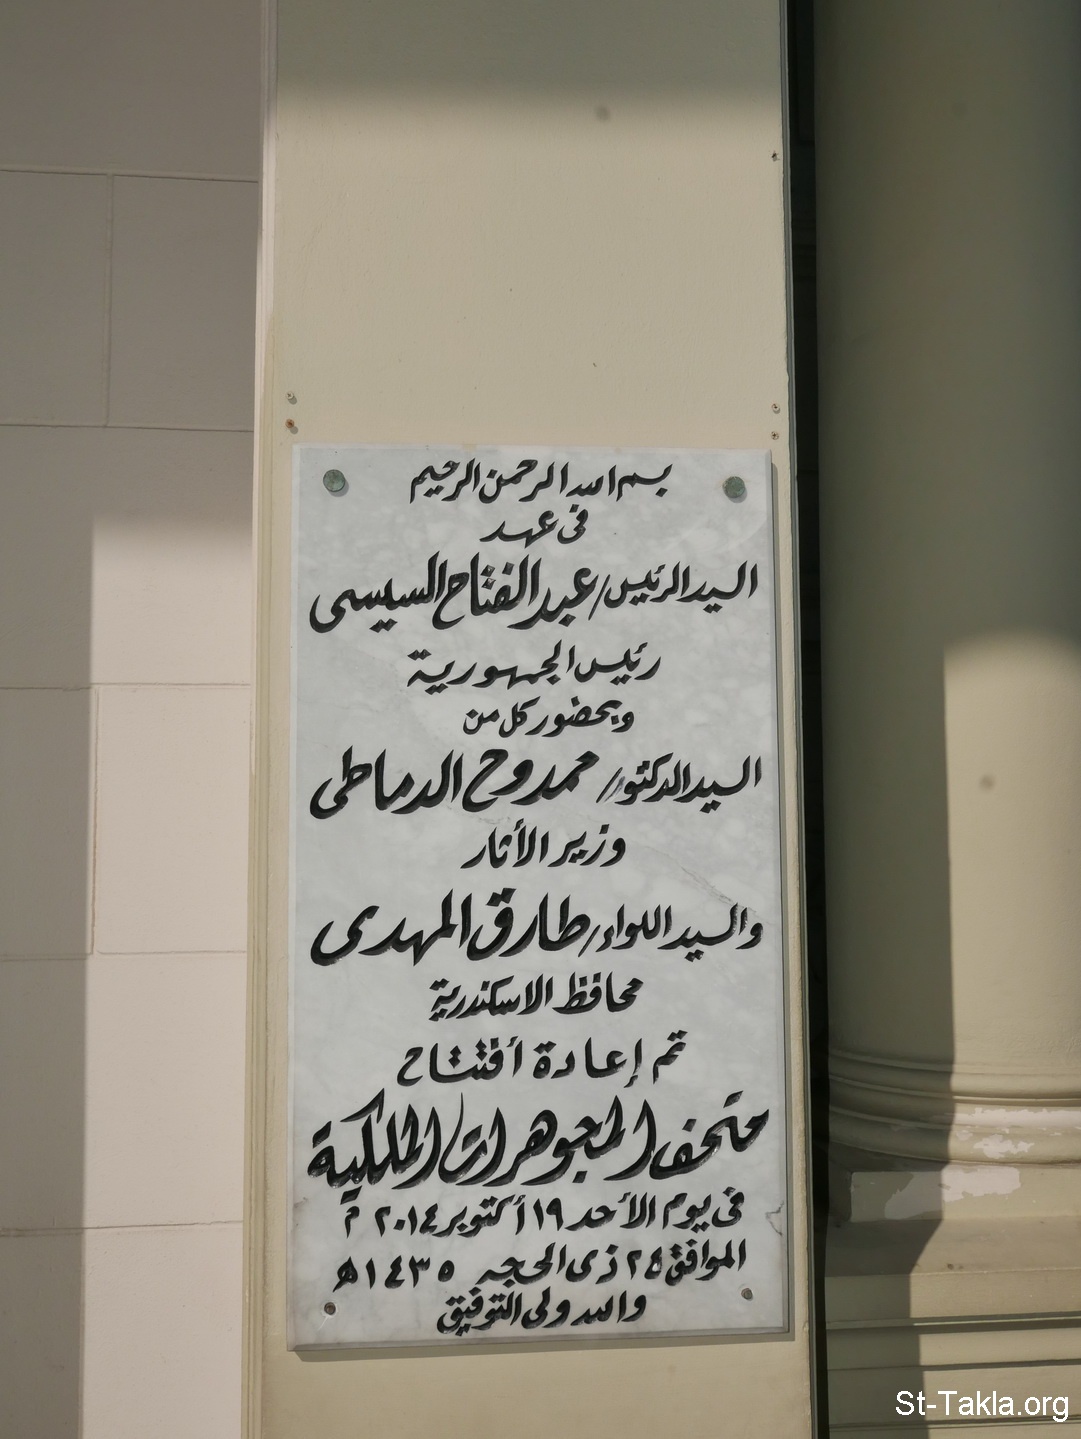 بسم الله الرحمن الرحيم
فى عهد
السيد الرئيس/عبد الفتاح السيسى
رئيس الجمهورية
وبحضور كل من
السيد الدكتور/ ممدوح الدماطى
وزير الأثار
والسيد اللواء/طارق المهدى
محافظ الاسكندرية
تم إعادة أفتتاح
متحف المجوهرات الملكية
فى يوم الأحد ١٩ أكتوبر ٢٠١٤ م
الموافق ٢٤ ذى الحجه ١٤٣٥ ھ
والله ولى التوفيق
St-Takla.org